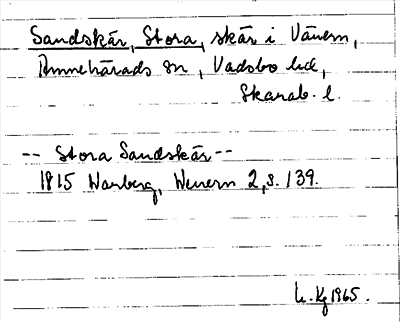 Sandskär, Stora, skär i Vänern,
Amnehärads sn, Vadsbo hd,
Skarab. l.
-- Stora Sandskär --
1815 Warberg, Wenern 2, s. 139.
L. Kg 1965.